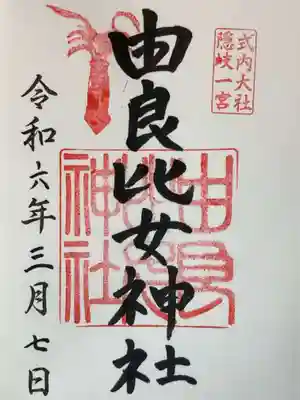 式内大社
隠岐一宮
由良比女神社
由良比女神社
令和六年三月七日